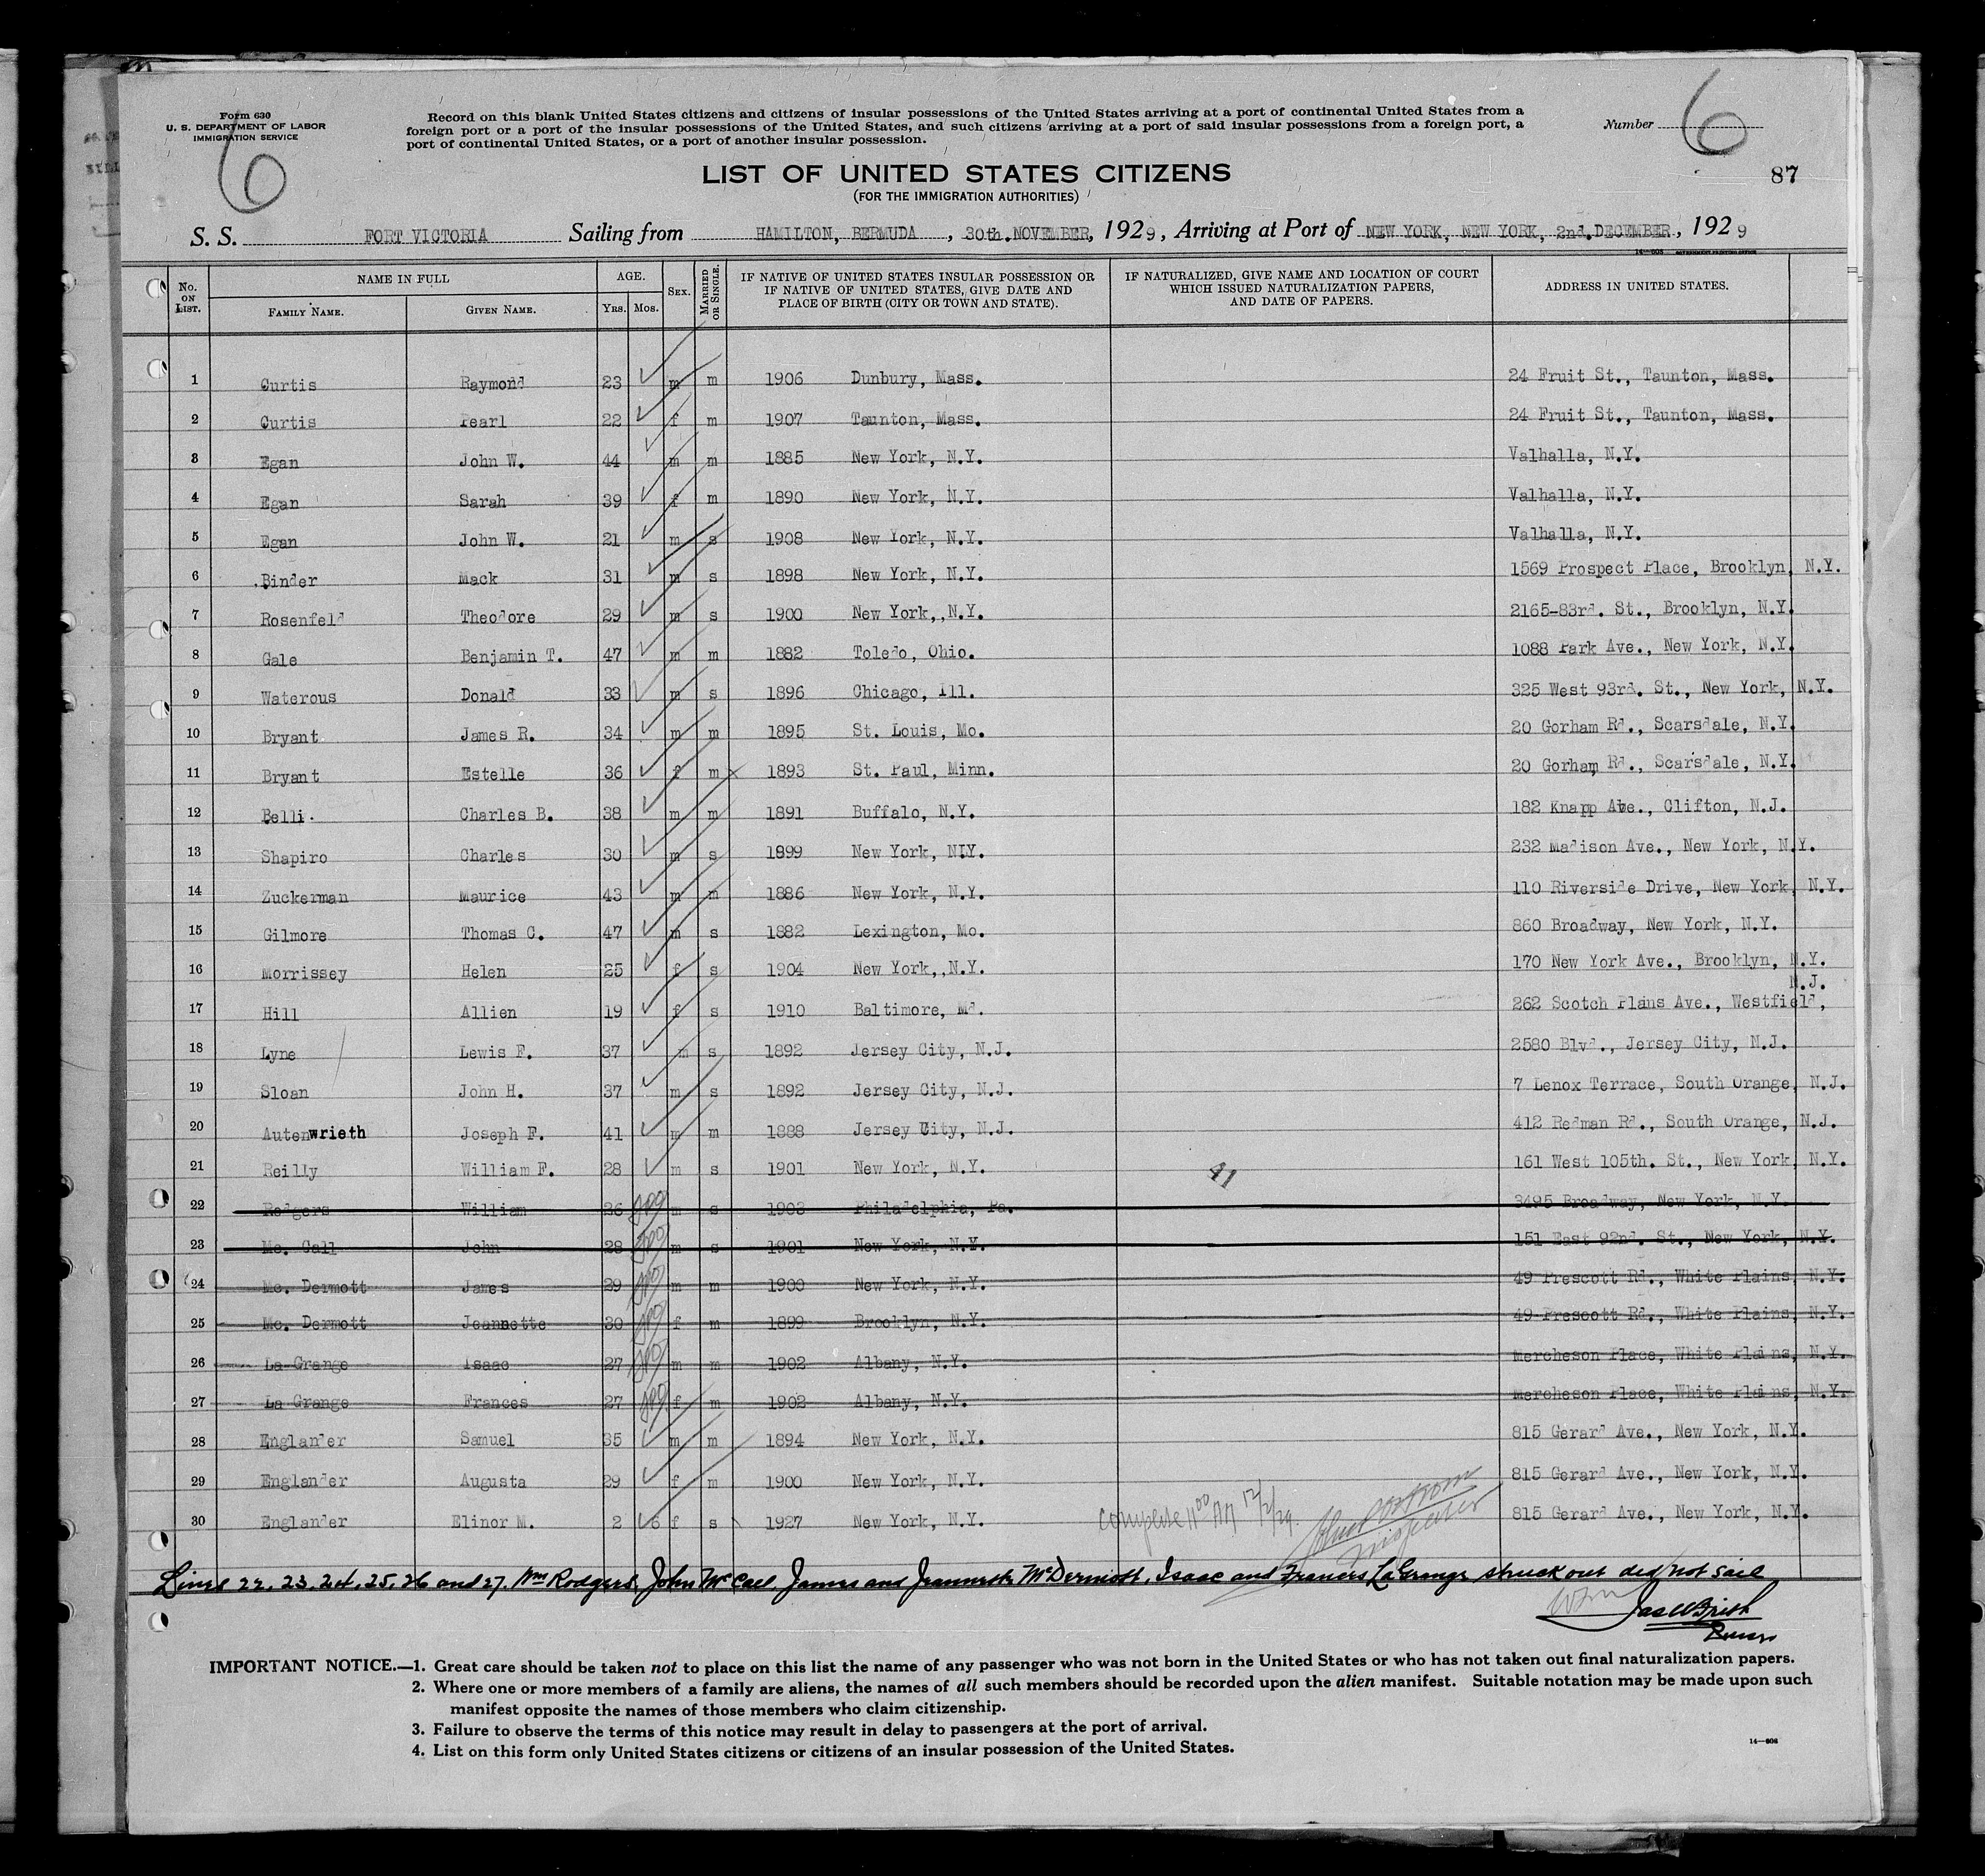 Form 630
U. S. DEPARTMENT OF LABOR
IMMIGRATION SERVICE
6
Record on this blank United States citizens and citizens of insular possessions of the United States arriving at a port of continental United States from a
foreign port or a port of the insular possessions of the United States, and such citizens arriving at a port of said insular possessions from a foreign port, a
port of continental United States, or a port of another insular possession.
Number 6
87
LIST OF UNITED STATES CITIZENS
(FOR THE IMMIGRATION AUTHORITIES)
S. S. FORT VICTORIA Sailing from HAMILTON, BERMUDA, 30th. NOVEMBER, 1929, Arriving at Port of NEW YORK, NEW YORK, 2nd. DECEMBER, 1929
14—608 GOVERNMENT PRINTING OFFICE
No. ON LIST. NAME IN FULL FAMILY NAME. GIVEN NAME. AGE. YRS. MOS. SEX. MARRIED OR SINGLE. IF NATIVE OF UNITED STATES INSULAR POSSESSION OR IF NATIVE OF UNITED STATES, GIVE DATE AND PLACE OF BIRTH (CITY OR TOWN AND STATE). IF NATURALIZED, GIVE NAME AND LOCATION OF COURT WHICH ISSUED NATURALIZATION PAPERS, AND DATE OF PAPERS. ADDRESS IN UNITED STATES.
1 Curtis Raymond 23 m m 1906 Dunbury, Mass. 24 Fruit St., Taunton, Mass.
2 Curtis Pearl 22 f m 1907 Taunton, Mass. 24 Fruit St., Taunton, Mass.
3 Egan John W. 44 m m 1885 New York, N.Y. Valhalla, N.Y.
4 Egan Sarah 39 f m 1890 New York, N.Y. Valhalla, N.Y.
5 Egan John W. 21 m s 1908 New York, N.Y. Valhalla, N.Y.
6 Binder Mack 31 m s 1898 New York, N.Y. 1569 Prospect Place, Brooklyn, N.Y.
7 Rosenfeld Theodore 29 m s 1900 New York,,N.Y. 2165-83rd. St., Brooklyn, N.Y.
8 Gale Benjamin T. 47 m m 1882 Toledo, Ohio. 1088 Park Ave., New York, N.Y.
9 Waterous Donald 33 m s 1896 Chicago, Ill. 325 West 93rd. St., New York, N.Y.
10 Bryant James R. 34 m m 1895 St. Louis, Mo. 20 Gorham Rd., Scarsdale, N.Y.
11 Bryant Estelle 36 f m 1893 St. Paul, Minn. 20 Gorham Rd., Scarsdale, N.Y.
12 Belli. Charles B. 38 m m 1891 Buffalo, N.Y. 182 Knapp Ave., Clifton, N.J.
13 Shapiro Charles 30 m s 1899 New York, NIY. 232 Madison Ave., New York, N.Y.
14 Zuckerman Maurice 43 m m 1886 New York, N.Y. 110 Riverside Drive, New York, N.Y.
15 Gilmore Thomas C. 47 m s 1882 Lexington, Mo. 860 Broadway, New York, N.Y.
16 Morrissey Helen 25 f s 1904 New York,,N.Y. 170 New York Ave., Brooklyn, N.Y.
17 Hill Allien 19 f s 1910 Baltimore, Md. 262 Scotch Plans Ave., Westfield, N.J.
18 Lyne Lewis F. 37 m s 1892 Jersey City, N.J. 2580 Blvd., Jersey City, N.J.
19 Sloan John H. 37 m s 1892 Jersey City, N.J. 7 Lenox Terrace, South Orange, N.J.
20 Autenwrieth Joseph F. 41 m m 1888 Jersey City, N.J. 412 Redman Rd., South Orange, N.J.
21 Reilly William F. 28 m s 1901 New York, N.Y. 41 161 West 105th. St., New York, N.Y.
22 Rodgers William 26 m s 1903 Philadelphia, Pa. 3495 Broadway, New York, N.Y.
23 Mc. Call John 28 m s 1901 New York, N.Y. 151 East 92nd. St., New York, N.Y.
24 Mc. Dermott James 29 m m 1900 New York, N.Y. 49 Prescott Rd., White Plains, N.Y.
25 Mc. Dermott Jeannette 30 f m 1899 Brooklyn, N.Y. 49 Prescott Rd., White Plains, N.Y.
26 La Grange Isaac 27 m m 1902 Albany, N.Y. Mercheson Place, White Plains, N.Y.
27 La Grange Frances 27 f m 1902 Albany, N.Y. Mercheson Place, White Plains, N.Y.
28 Englander Samuel 35 m m 1894 New York, N.Y. 815 Gerard Ave., New York, N.Y.
29 Englander Augusta 29 f m 1900 New York, N.Y. 815 Gerard Ave., New York, N.Y.
30 Englander Elinor M. 2 6 f s 1927 New York, N.Y. 815 Gerard Ave., New York, N.Y.
Complete 11 00 AM 12/2/29. Inspector
Lines 22, 23, 24, 25, 26 and 27, Wm Rodgers, John McCall, James and Jeannette McDermott, Isaac and Frances LaGrange struck out did not sail
Purser
IMPORTANT NOTICE.—1. Great care should be taken not to place on this list the name of any passenger who was not born in the United States or who has not taken out final naturalization papers.
2. Where one or more members of a family are aliens, the names of all such members should be recorded upon the alien manifest. Suitable notation may be made upon such
manifest opposite the names of those members who claim citizenship.
3. Failure to observe the terms of this notice may result in delay to passengers at the port of arrival.
4. List on this form only United States citizens or citizens of an insular possession of the United States.
14—608